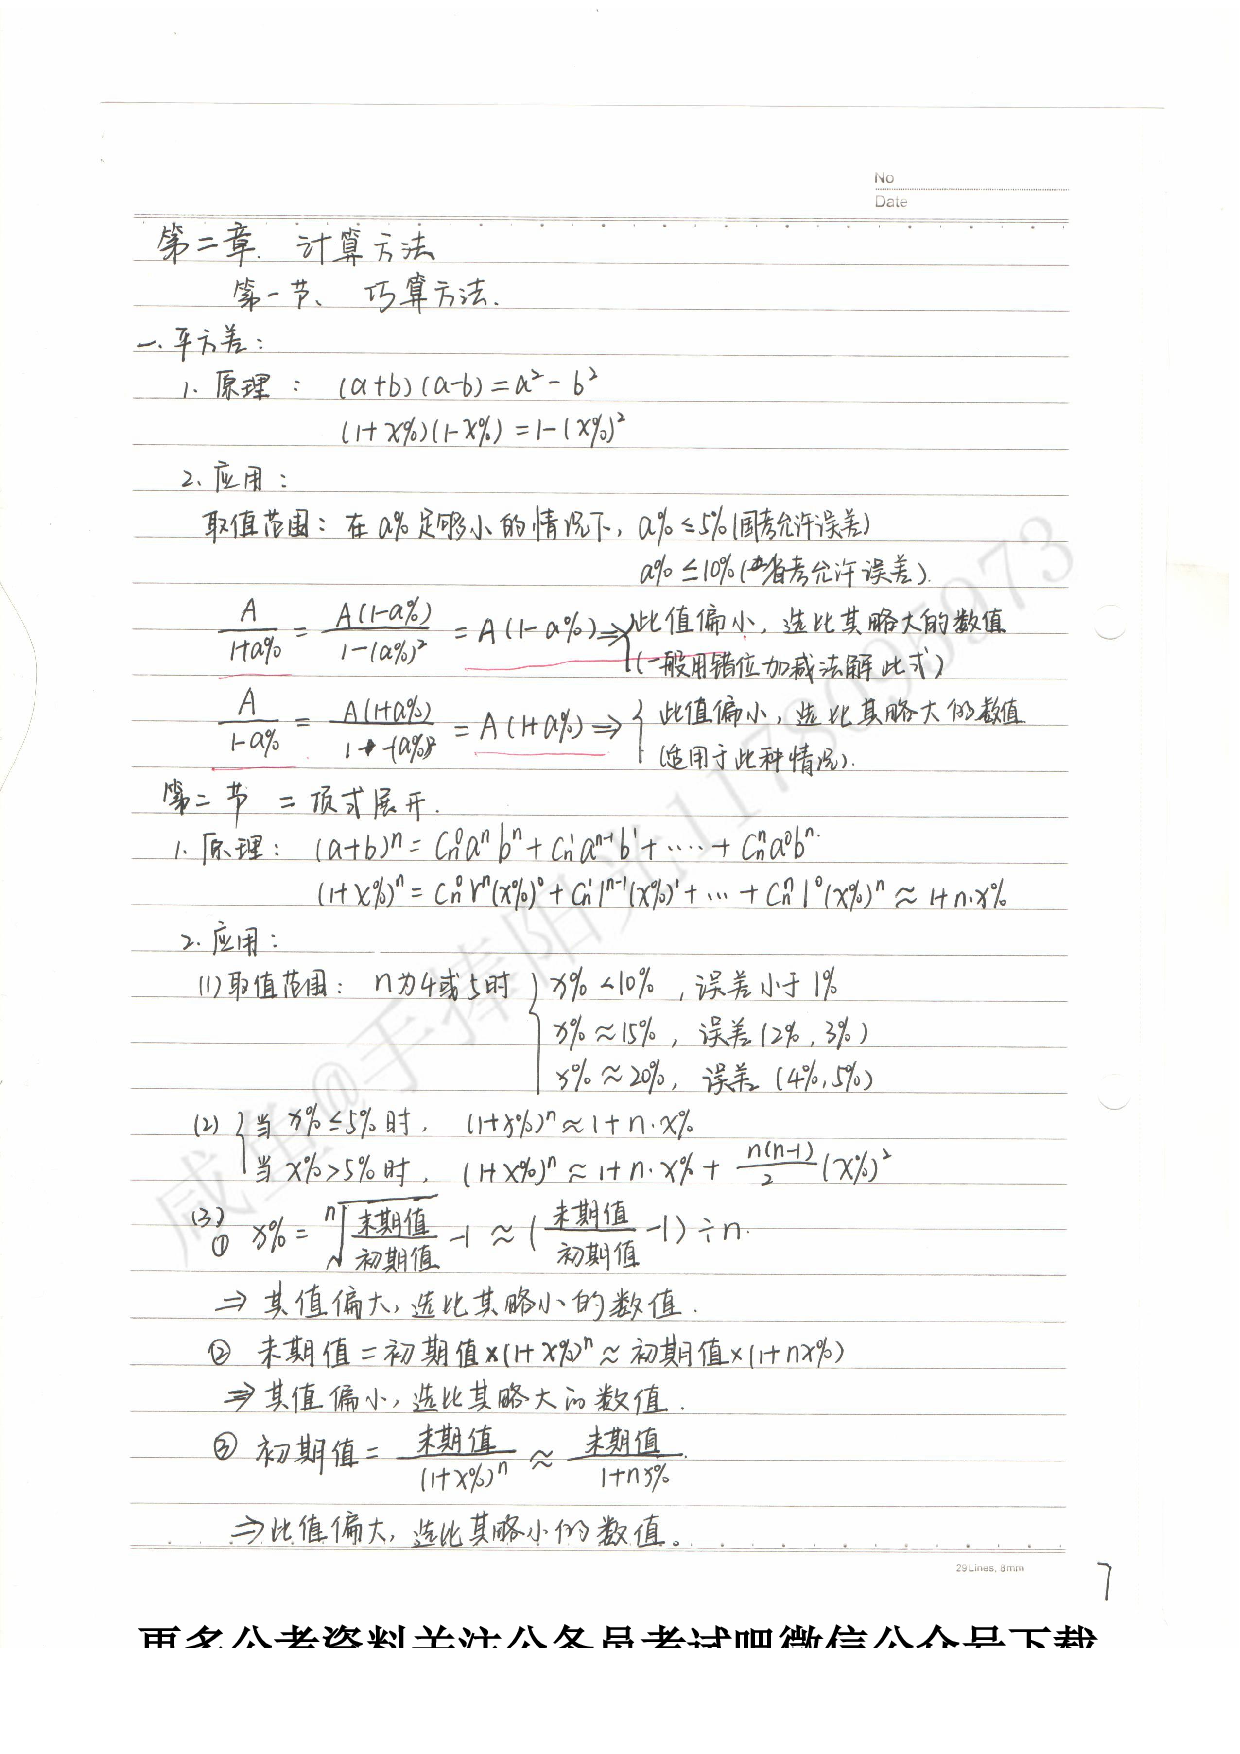 No
Date
第二章. 计算方法
第一节、巧算方法.
一.平方差:
1. 原理: (a+b)(a-b)=a²-b²
(1+x%)(1-x%)=1-(x%)²
2. 应用:
取值范围: 在a%足够小的情况下, a%≤5%(国考允许误差)
a%≤10%(省考允许误差).
A/(1+a%) = A(1-a%)/(1-(a%)²) = A(1-a%) ⇒ { 此值偏小, 选比其略大的数值
(一般用错位加减法解此式)
A/(1-a%) = A(1+a%)/(1-(a%)²) = A(1+a%) ⇒ { 此值偏小, 选比其略大的数值
(适用于此种情况).
第二节 二项式展开.
1. 原理: (a+b)ⁿ = Cn⁰aⁿbⁿ + Cn¹aⁿ⁻¹b¹ + ⋯⋯ + Cnⁿa⁰bⁿ.
(1+x%)ⁿ = Cn⁰1ⁿ(x%)⁰ + Cn¹1ⁿ⁻¹(x%)¹ + ⋯ + Cnⁿ1⁰(x%)ⁿ ≈ 1+n·x%
2. 应用:
(1)取值范围: n为4或5时 { x%<10%, 误差小于1%
x%≈15%, 误差(2%, 3%)
x%≈20%, 误差(4%, 5%)
(2) { 当x%≤5%时, (1+x%)ⁿ≈1+n·x%
当x%>5%时, (1+x%)ⁿ≈1+n·x%+n(n-1)/2(x%)²
(3)
① x% = ⁿ√(末期值/初期值) -1 ≈ (末期值/初期值 -1)÷n.
⇒ 其值偏大, 选比其略小的数值.
② 末期值=初期值×(1+x%)ⁿ≈初期值×(1+nx%)
⇒ 其值偏小, 选比其略大的数值.
③ 初期值 = 末期值/(1+x%)ⁿ ≈ 末期值/(1+nx%).
⇒ 此值偏大, 选比其略小的数值。
29Lines, 8mm
7
更多公考资料关注公务员考试吧微信公众号下载
咸鱼@手捧阳光1178095973